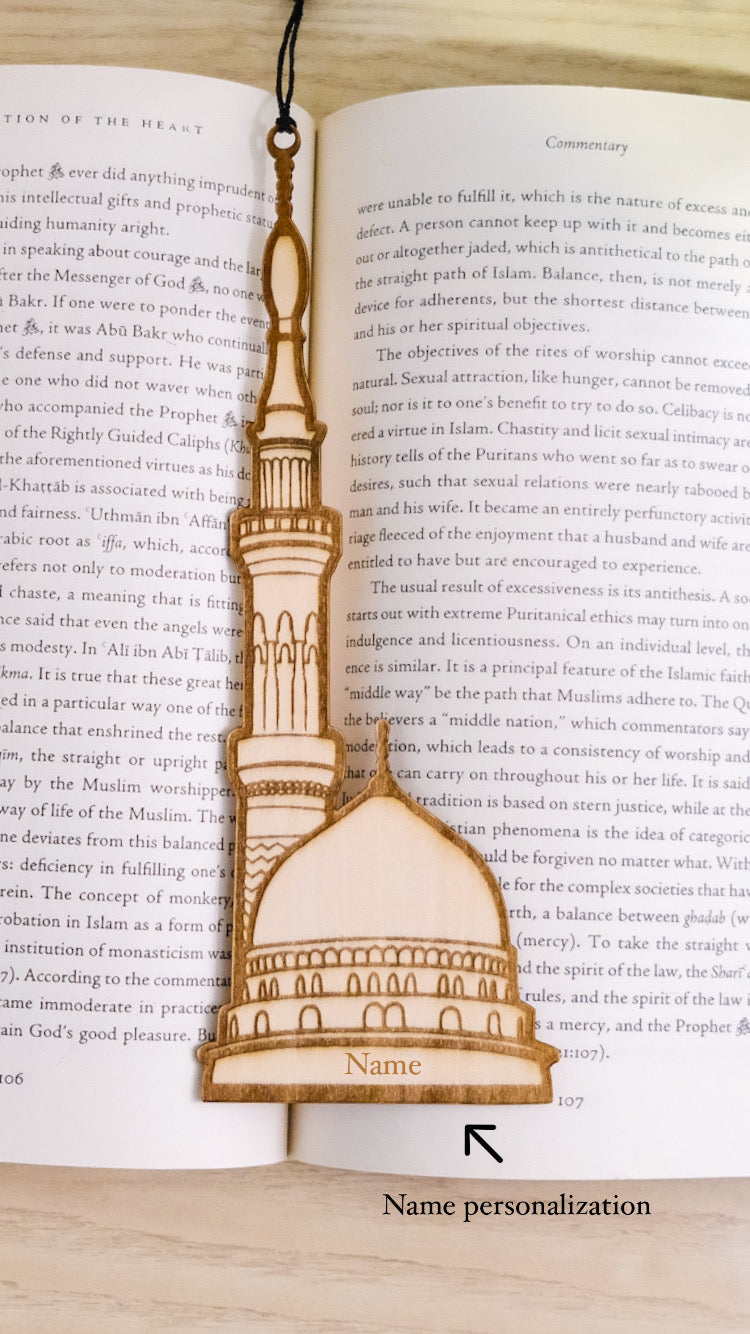 TION OF THE HEART
rophet ﷺ ever did anything imprudent
his intellectual gifts and prophetic
uiding humanity aright.
in speaking about courage and the
fter the Messenger of God ﷺ, no one
Bakr. If one were to ponder the
ﷺ, it was Abū Bakr who
's defense and support. He was
e one who did not waver when
who accompanied the Prophet ﷺ
of the Rightly Guided Caliphs
the aforementioned virtues as his
l-Khaṭṭāb is associated with being
nd fairness. ʿUthmān ibn ʿAffān
rabic root as ʿiffa, which,
refers not only to moderation but
chaste, a meaning that is fitting
nce said that even the angels were
s modesty. In ʿAlī ibn Abī Ṭālib,
ikma. It is true that these great
ed in a particular way one of the
balance that enshrined the rest.
the straight or upright
ay by the Muslim worshipper.
way of life of the Muslim. The
ne deviates from this balanced
s: deficiency in fulfilling one's
rein. The concept of monkery,
robation in Islam as a form of
institution of monasticism was
7). According to the
came immoderate in practice
ain God's good pleasure.
106
Commentary
were unable to fulfill it, which is the nature of excess
defect. A person cannot keep up with it and becomes
out or altogether jaded, which is antithetical to the path
the straight path of Islam. Balance, then, is not merely
device for adherents, but the shortest distance between
and his or her spiritual objectives.
The objectives of the rites of worship cannot
natural. Sexual attraction, like hunger, cannot be removed
soul; nor is it to one's benefit to try to do so. Celibacy is
ered a virtue in Islam. Chastity and licit sexual intimacy are
history tells of the Puritans who went so far as to swear
desires, such that sexual relations were nearly tabooed
man and his wife. It became an entirely perfunctory
riage fleeced of the enjoyment that a husband and wife are
entitled to have but are encouraged to experience.
The usual result of excessiveness is its antithesis. A
starts out with extreme Puritanical ethics may turn into
indulgence and licentiousness. On an individual level,
ence is similar. It is a principal feature of the Islamic
"middle way" be the path that Muslims adhere to. The
the believers a "middle nation," which commentators say
which leads to a consistency of worship and
can carry on throughout his or her life. It is said
tradition is based on stern justice, while at the
stian phenomena is the idea of
uld be forgiven no matter what.
for the complex societies that
a balance between ghaḍab
(mercy). To take the straight
and the spirit of the law, the
rules, and the spirit of the law
s a mercy, and the Prophet ﷺ
21:107).
107
Name
Name personalization